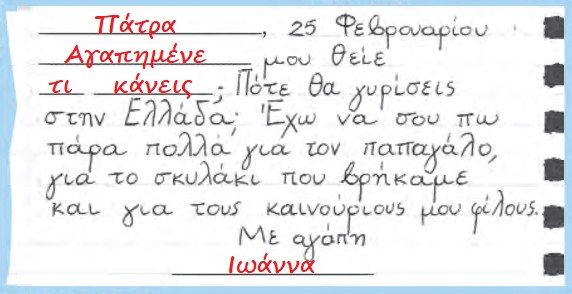 Πάτρα, 25 Φεβρουαρίου
Αγαπημένε μου θείε
τι κάνεις; Πότε θα γυρίσεις
στην Ελλάδα; Έχω να σου πω
πάρα πολλά για τον παπαγάλο,
για το σκυλάκι που βρήκαμε
και για τους καινούριους μου φίλους.
Με αγάπη
Ιωάννα